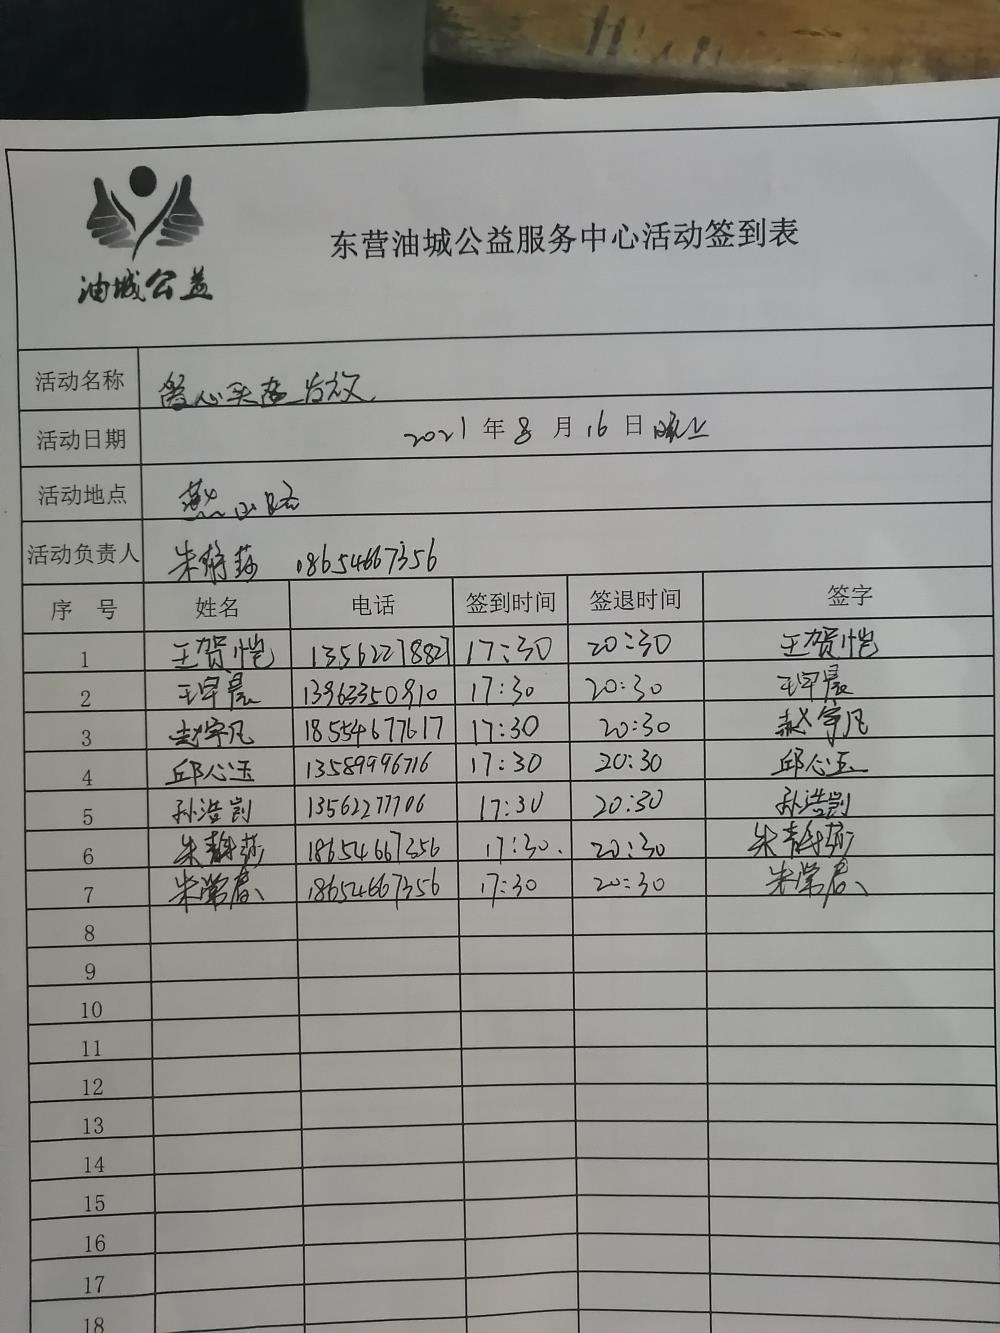 油城公益
东营油城公益服务中心活动签到表
活动名称 爱心头盔发放
活动日期 2021年8月16日晚上
活动地点 燕山路
活动负责人 朱静莎 18654667356
序号 姓名 电话 签到时间 签退时间 签字
1 王贺恺 13562278827 17:30 20:30 王贺恺
2 王早晨 13963350910 17:30 20:30 王早晨
3 赵宇凡 18554677617 17:30 20:30 赵宇凡
4 邱心玉 13589996716 17:30 20:30 邱心玉
5 孙浩剀 13562277706 17:30 20:30 孙浩剀
6 朱静莎 18654667356 17:30. 20:30 朱静莎
7 朱常春 18654667356 17:30 20:30 朱常春
8
9
10
11
12
13
14
15
16
17
18